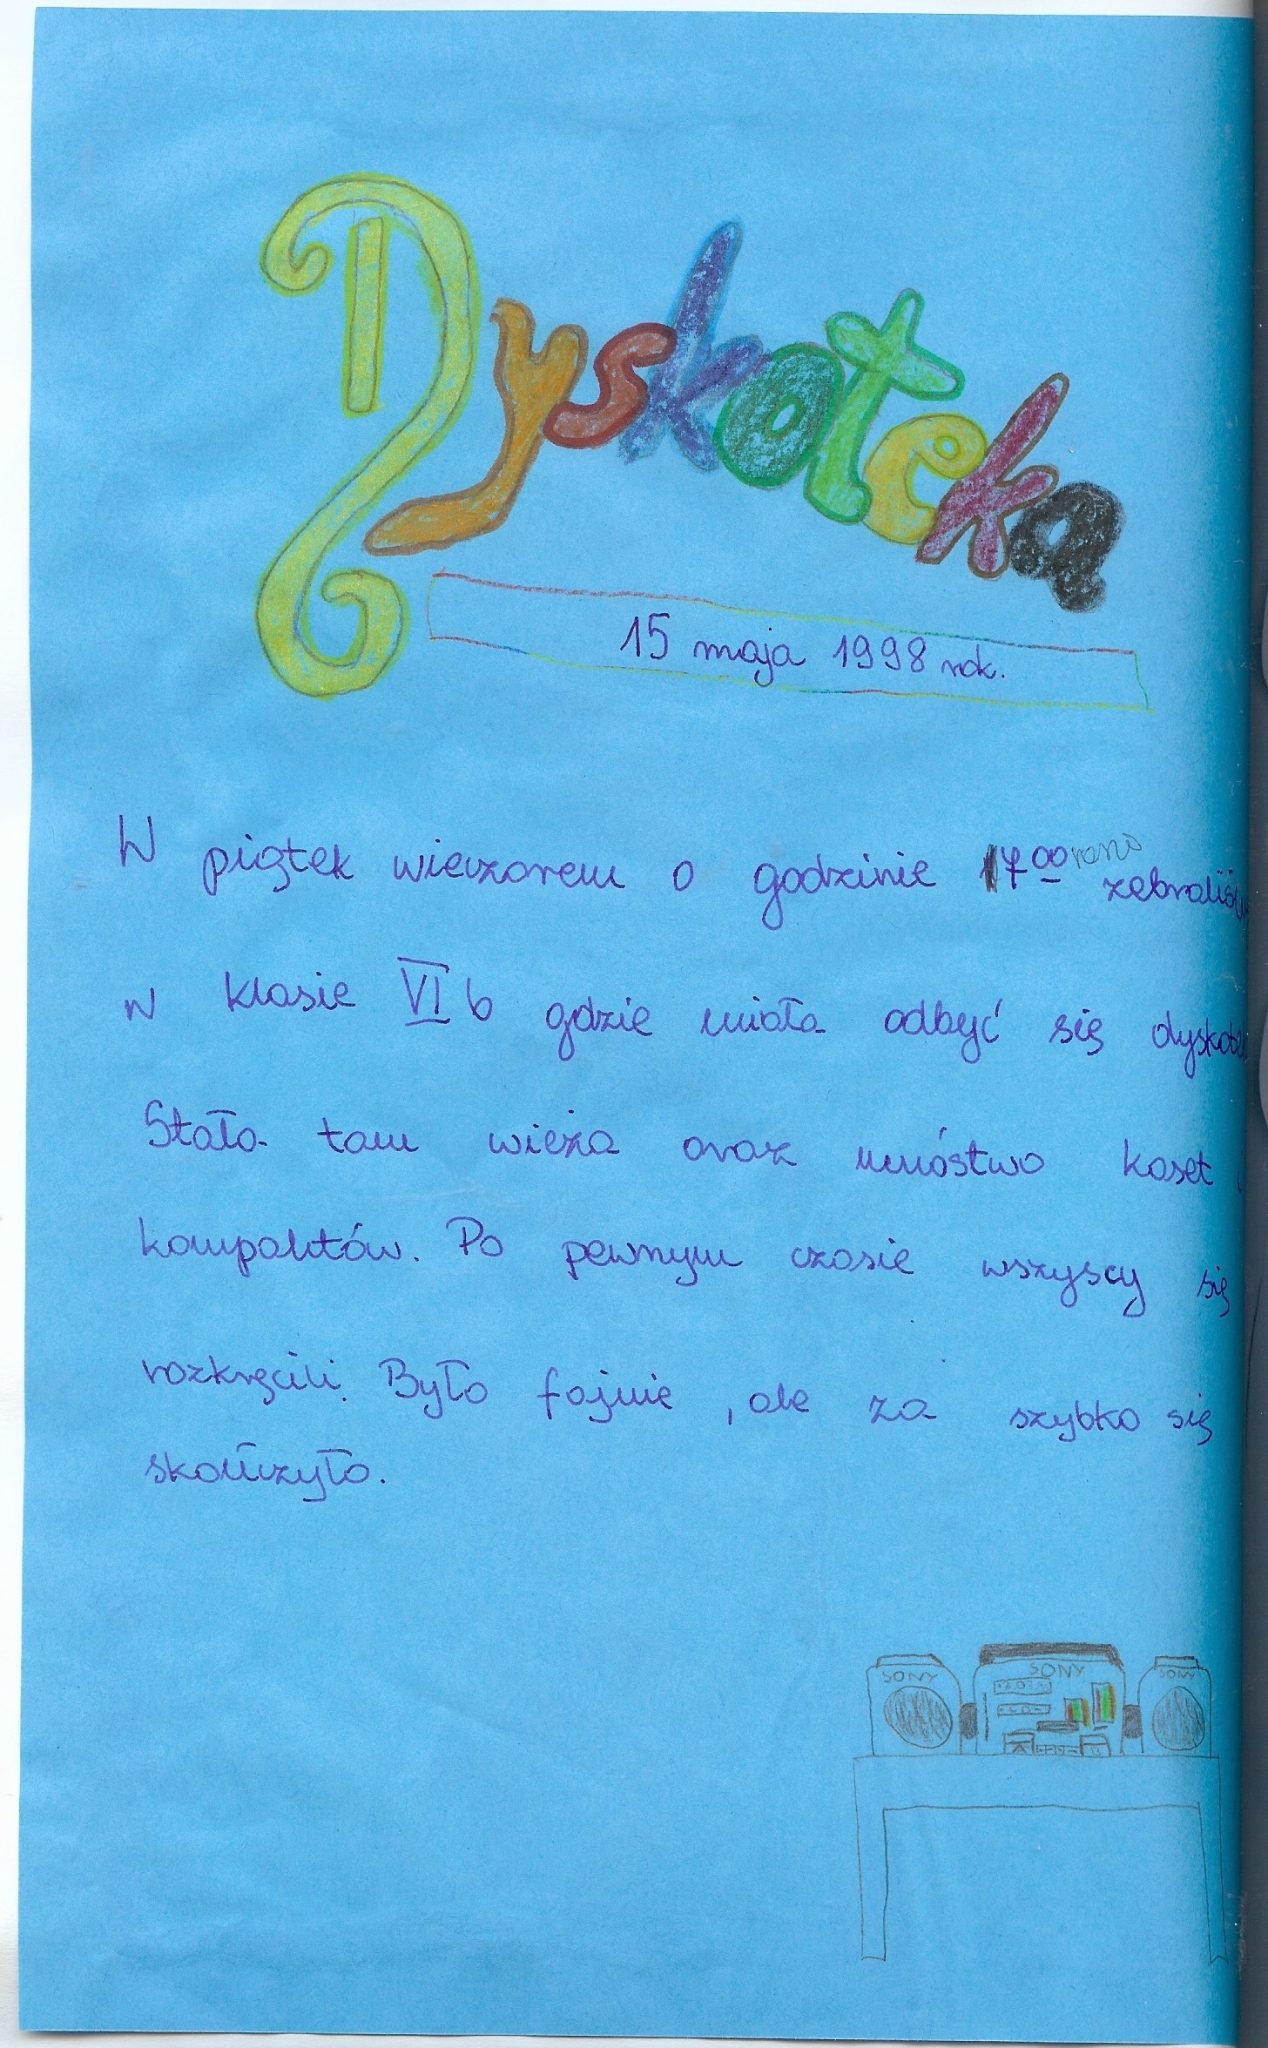 Dyskoteka
15 maja 1998 rok.
W piątek wieczorem o godzinie 17 00 rano zebraliśmy
w klasie VI b gdzie miała odbyć się
Stała tam wieża oraz mnóstwo kaset
kompaktów. Po pewnym czasie wszyscy się
rozkręcili. Było fajnie, ale za szybko się
skończyło.
SONY SONY SONY